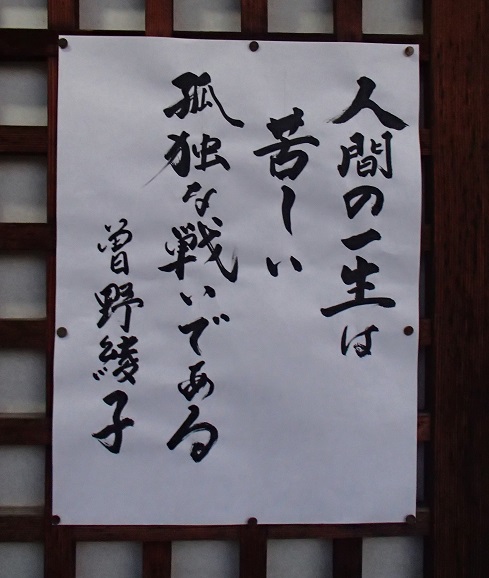 人間の一生は
苦しい
孤独な戦いである
曽野綾子